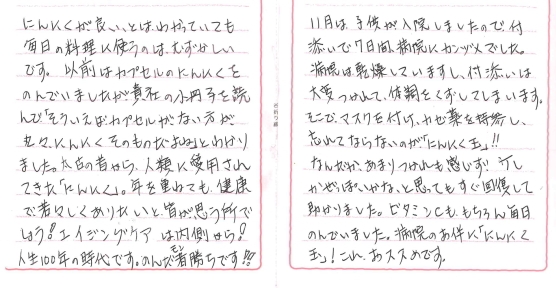 にんにくが良い、とは、わかっていても
毎日の料理に使うのは、むずかしい
です。以前はカプセルのにんにくを
のんでいましたが貴社の小冊子を読
んで「そういえばカプセルがない方が
丸々、にんにくそのものだよね」とわかり
ました。太古の昔から、人類に愛用され
てきた「にんにく」。年を重ねても、健康
で若々しくありたいと、皆が思う所で
しょう!エイジングケアは内側から!
人生100年の時代です。のんだ者勝ちです!!!
モン
谷折り線
11月は、子供が入院しましたので、付
添いで7日間、病院にカンヅメでした。
病院は乾燥していますし、付添いは
大変つかれて、体調をくずしてしまいます。
そこで、マスクを付け、カゼ薬を持参し、
忘れてならないのが「にんにく玉」!!
なんだか、あまりつかれも感じず!少し
かぜっぽいかな、と思ってもすぐ回復して
助かりました。ビタミンCも、もちろん毎日
のんでいました。病院のお伴に「にんにく
玉」!これ、おススめです。